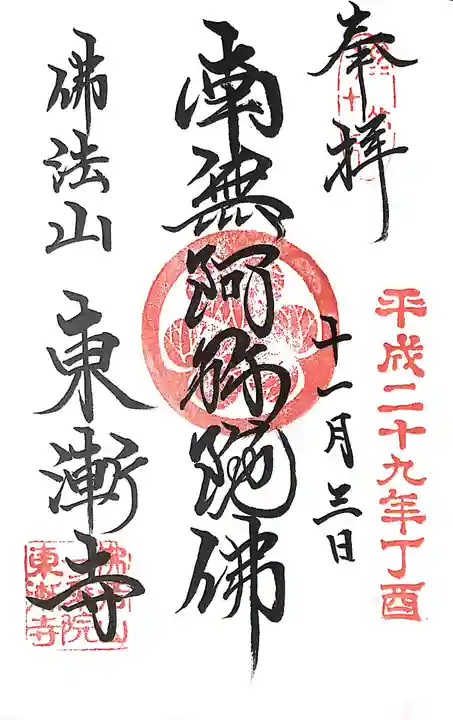 奉拝
平成二十九年丁酉
十一月三日
南無阿弥陀佛
佛法山 東漸寺
東漸寺